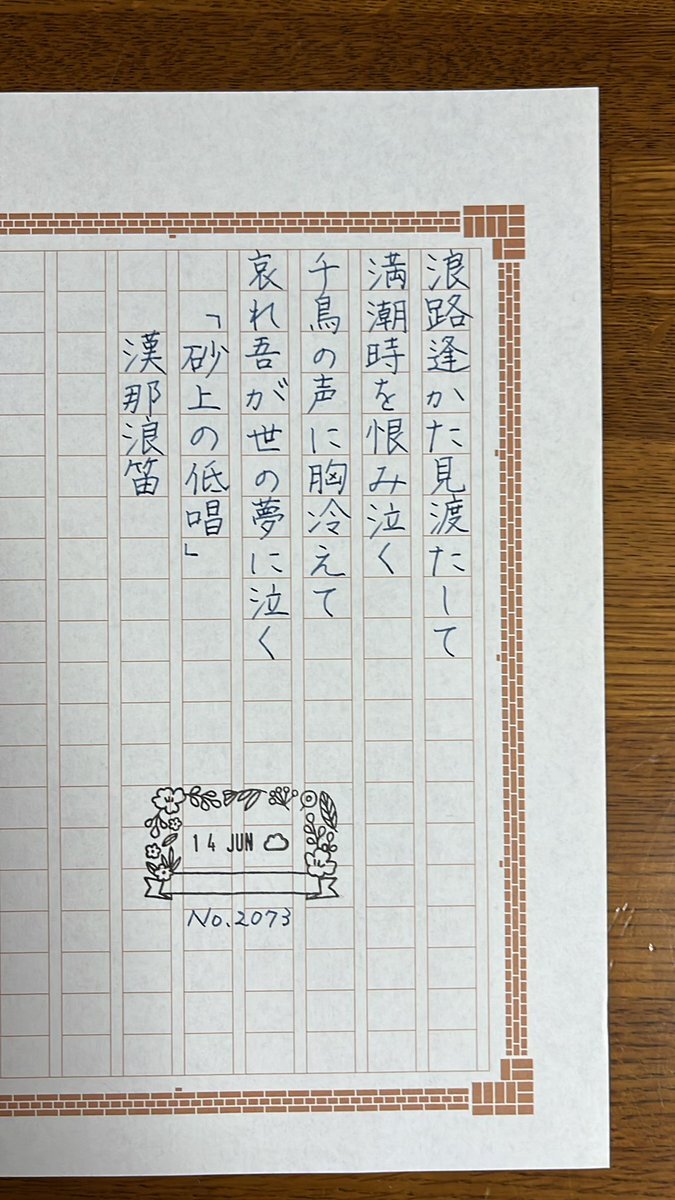 浪路逢かた見渡たして
満潮時を恨み泣く
千鳥の声に胸冷えて
哀れ吾が世の夢に泣く
「砂上の低唱」
漢那浪笛
14 JUN
No.2073